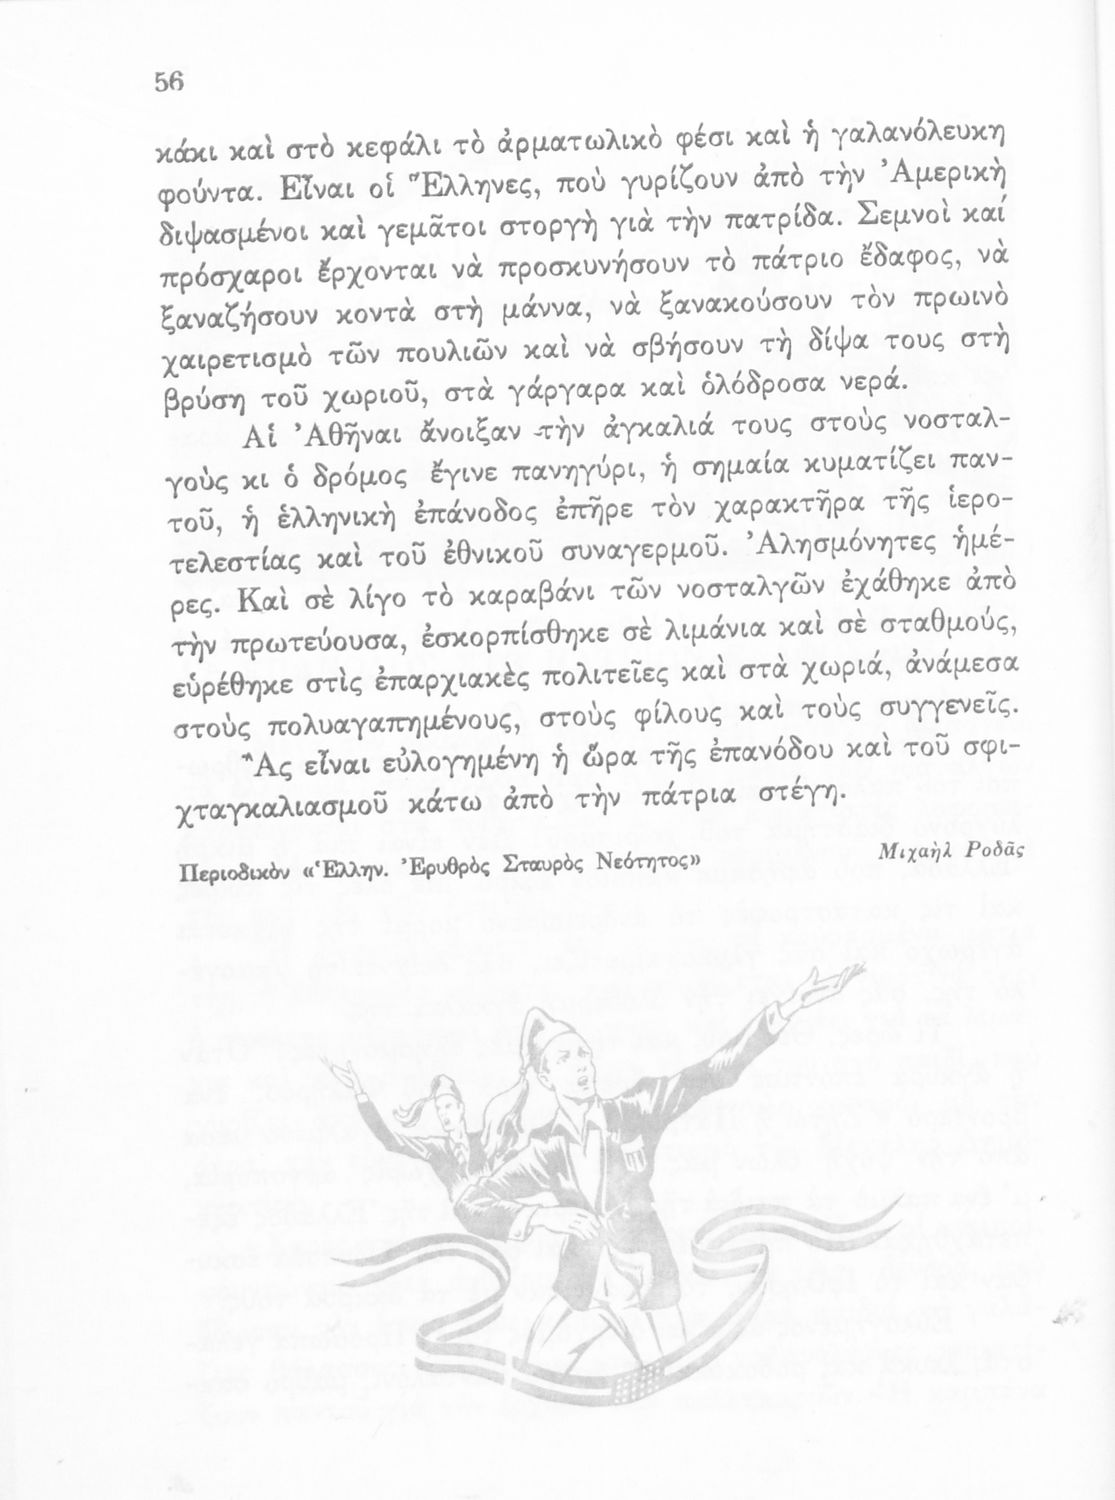 56
κάκι καὶ στὸ κεφάλι τὸ ἀρματωλικὸ φέσι καὶ ἡ γαλανόλευκη
φούντα. Εἶναι οἱ Ἕλληνες, ποὺ γυρίζουν ἀπὸ τὴν Ἀμερικὴ
διψασμένοι καὶ γεμᾶτοι στοργὴ γιὰ τὴν πατρίδα. Σεμνοὶ καὶ
πρόσχαροι ἔρχονται νὰ προσκυνήσουν τὸ πάτριο ἔδαφος, νὰ
ξαναζήσουν κοντὰ στὴ μάννα, νὰ ξανακούσουν τὸν πρωινὸ
χαιρετισμὸ τῶν πουλιῶν καὶ νὰ σβήσουν τὴ δίψα τους στὴ
βρύση τοῦ χωριοῦ, στὰ γάργαρα καὶ ὁλόδροσα νερά.
Αἱ Ἀθῆναι ἄνοιξαν τὴν ἀγκαλιά τους στοὺς νοσταλ-
γοὺς κι ὁ δρόμος ἔγινε πανηγύρι, ἡ σημαία κυματίζει παν-
τοῦ, ἡ ἑλληνικὴ ἐπάνοδος ἐπῆρε τὸν χαρακτῆρα τῆς ἱερο-
τελεστίας καὶ τοῦ ἐθνικοῦ συναγερμοῦ. Ἀλησμόνητες ἡμέ-
ρες. Καὶ σὲ λίγο τὸ καραβάνι τῶν νοσταλγῶν ἐχάθηκε ἀπὸ
τὴν πρωτεύουσα, ἐσκορπίσθηκε σὲ λιμάνια καὶ σὲ σταθμούς,
εὑρέθηκε στὶς ἐπαρχιακὲς πολιτεῖες καὶ στὰ χωριά, ἀνάμεσα
στοὺς πολυαγαπημένους, στοὺς φίλους καὶ τοὺς συγγενεῖς.
Ἂς εἶναι εὐλογημένη ἡ ὥρα τῆς ἐπανόδου καὶ τοῦ σφι-
χταγκαλιασμοῦ κάτω ἀπὸ τὴν πάτρια στέγη.
Περιοδικὸν «Ἑλλην. Ἐρυθρὸς Σταυρὸς Νεότητος»
Μιχαὴλ Ροδᾶς